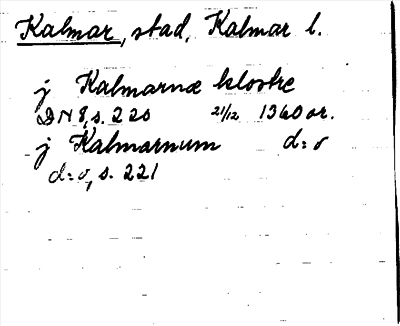 Kalmar, stad, Kalmar l.
j Kalmarnæ klostre
DN 8, s. 220 21/12 1360 or.
j Kalmarnum d:o
d:o, s. 221